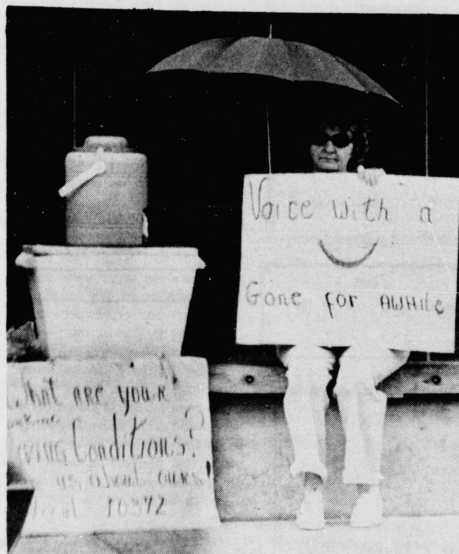 Voice With a
Gone for AWHile
What ARE YOUR
Conditions?
us about ours!
10372